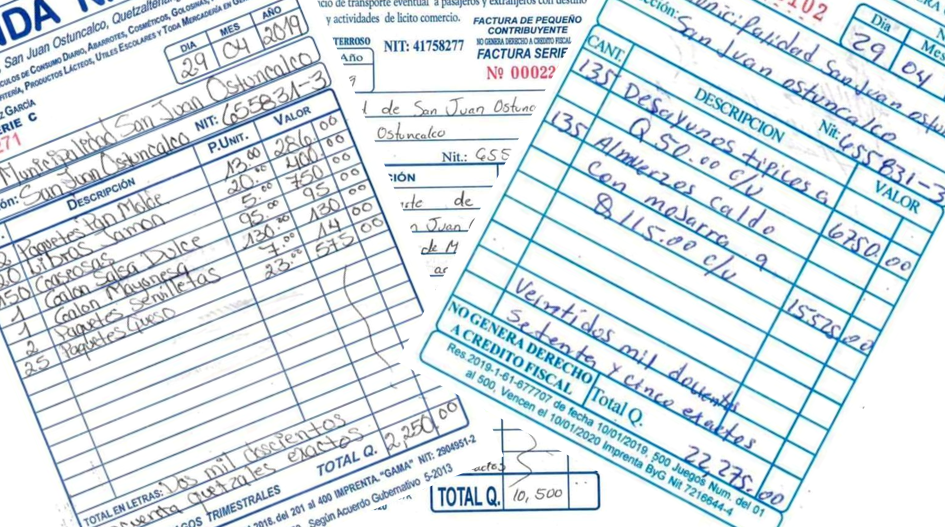 DA
San Juan Ostuncalco, Quetzaltenan
CULOS DE CONSUMO DIARIO, ABARROTES, COSMÉTICOS, GOLOSINAS,
FITERÍA, PRODUCTOS LÁCTEOS, UTILES ESCOLARES Y TODA MERCADERÍA EN GE
Z GARCÍA
RIE C
271
DIA MES AÑO
29 04 2019
Municipalidad San Juan Ostuncalco
ón: San Juan Ostuncalco NIT: 655831-3
DESCRIPCIÓN P.UNIT. VALOR
2 Paquetes Pan Molde 13.00 286 00
20 Libras Jamon 20.00 400 00
150 Gaseosas 5.00 750 00
1 Galon Salsa Dulce 95.00 95 00
1 Galon Mayonesa 130.00 130 00
2 Paquetes Servilletas 7.00 14 00
25 Paquetes Queso 23.00 575 00
TOTAL EN LETRAS: Dos mil doscientos
cuenta quetzales exactos.
TOTAL Q. 2,250.00
GOS TRIMESTRALES
2018, del 201 al 400 IMPRENTA, "GAMA" NIT: 2904951-2
Según Acuerdo Gubernativo 5-2013
icio de transporte eventual a pasajeros y extranjeros con destino
y actividades de licito comercio.
FACTURA DE PEQUEÑO
CONTRIBUYENTE
NO GENERA DERECHO A CREDITO FISCAL
TERROSO NIT: 41758277 FACTURA SERIE
Año Nº 00022
l de San Juan Ostunc
Ostuncalco
Nit.: 655
CIÓN
rte de
n Juan
de M
ar
actos
TOTAL Q. 10,500
102
cción:
Municipalidad San Juan ostun
San Juan ostuncalco
Nit: 655831-3
Dia Mes
29 04
CANT. DESCRIPCION VALOR
135 Desayunos tipicos a
Q 50.00 c/u 6750.00
135 Almuerzos caldo
con mojarra a
Q 115.00 c/u 15525.00
Veintidos mil doscientos
Setenta y cinco exactos
NO GENERA DERECHO
A CREDITO FISCAL
Total Q. 22,275.00
Res.2019-1-61-677707 de fecha 10/01/2019, 500 Juegos Num. del 01
al 500, Vencen el 10/01/2020 Imprenta ByG Nit 7216644-4